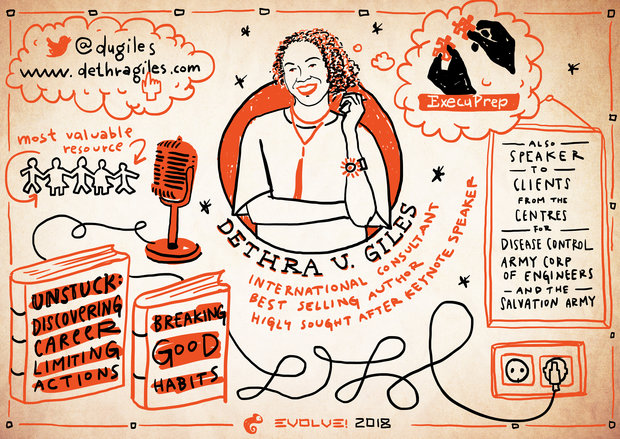 @dugiles
www.dethragiles.com
ExecuPrep
most valuable
resource
DETHRA U. GILES
INTERNATIONAL CONSULTANT
BEST SELLING AUTHOR
HIGLY SOUGHT AFTER KEYNOTE SPEAKER
ALSO
SPEAKER
TO
CLIENTS
FROM THE
CENTRES
FOR
DISEASE CONTROL
ARMY CORP
OF ENGINEERS
AND THE
SALVATION ARMY
UNSTUCK:
DISCOVERING
CAREER
LIMITING
ACTIONS
BREAKING
GOOD
HABITS
EVOLVE! 2018